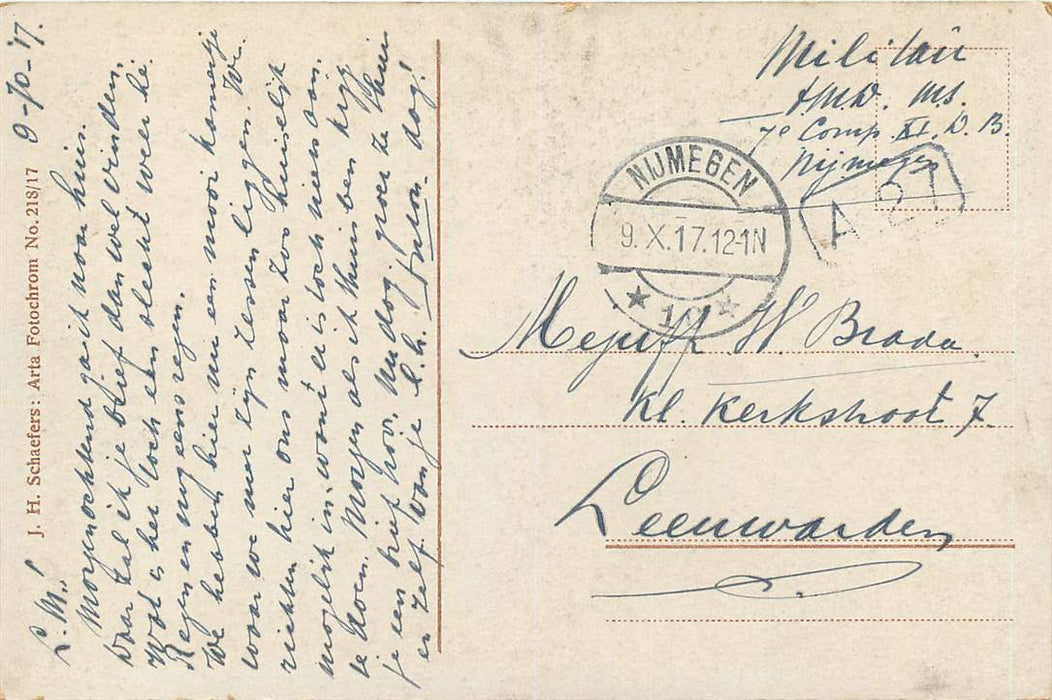 9-10-'17.
L. M.!
Morgenochtend ga ik naar huis.
Daar zal ik je brief dan wel vinden.
Wat is het toch een slecht weer hè.
Regen en nog eens regen.
We hebben hier nu een mooi kamertje
waar we met zijn zessen liggen. We
richten hier ons maar zoo huiselijk
mogelijk in, want er is toch niets aan
te doen. Morgen als ik thuis ben krijg
je een brief hoor. Nu dag, groet ze thuis
en zelf van je l.h. dag!
J. H. Schaefers: Arta Fotochrom No. 218/17
Militair
MS.
7e Comp. XI. D. B.
Nijmegen
NIJMEGEN
9.X.17.12-1N
10
A 27
Mejuff W. Brada.
Kl. Kerkstraat 7.
Leeuwarden